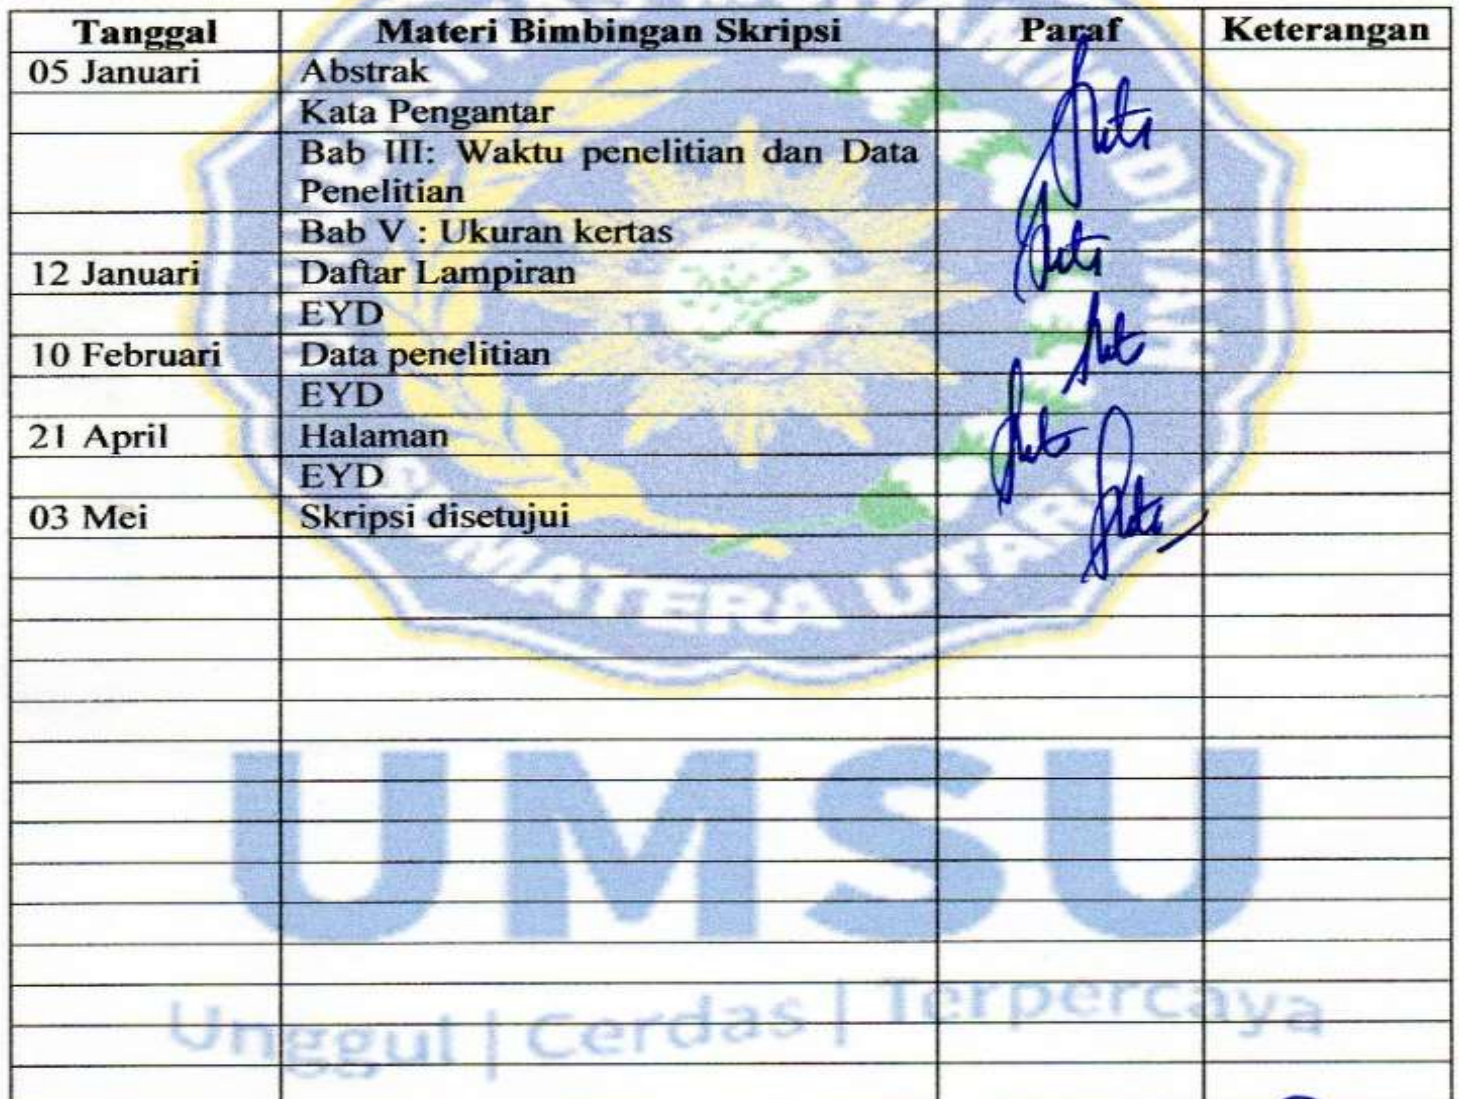 Tanggal Materi Bimbingan Skripsi Paraf Keterangan
05 Januari Abstrak
Kata Pengantar
Bab III: Waktu penelitian dan Data
Penelitian
Bab V : Ukuran kertas
12 Januari Daftar Lampiran
EYD
10 Februari Data penelitian
EYD
21 April Halaman
EYD
03 Mei Skripsi disetujui
SUMATERA UTARA
UMSU
Unggul | Cerdas | Terpercaya